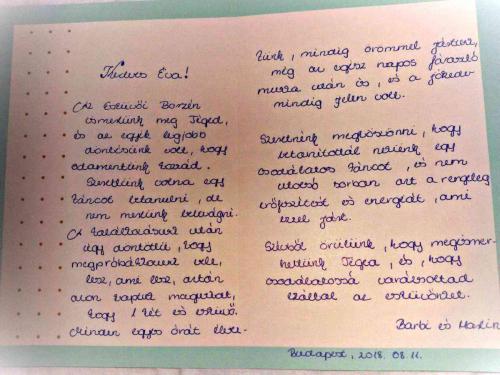 Kedves Éva!
Az Esküvői Börzén
ismertünk meg Téged,
és az egyik legjobb
döntésünk volt, hogy
odamentünk hozzád.
Szerettünk volna egy
táncot betanulni, de
nem mertünk belevágni.
A találkozásunk után
úgy döntöttünk, hogy
megpróbálkozunk vele,
lesz, ami lesz, aztán
azon kaptuk magunkat,
hogy 1 hét és esküvő.
Minden egyes órát élvez-
tünk, mindig örömmel jöttünk,
még az egész napos fárasztó
munka után is, és a jókedv
mindig jelen volt.
Szeretnénk megköszönni, hogy
betanítottál nekünk egy
csodálatos táncot, és nem
utolsó sorban azt a rengeteg
erőfeszítést és energiát, ami
ezzel járt.
Szívből örülünk, hogy megismer-
hettünk Téged, és, hogy
csodálatossá varázsoltad
ezáltal az esküvőnket.
Barbi és Martin
Budapest, 2018. 08. 11.